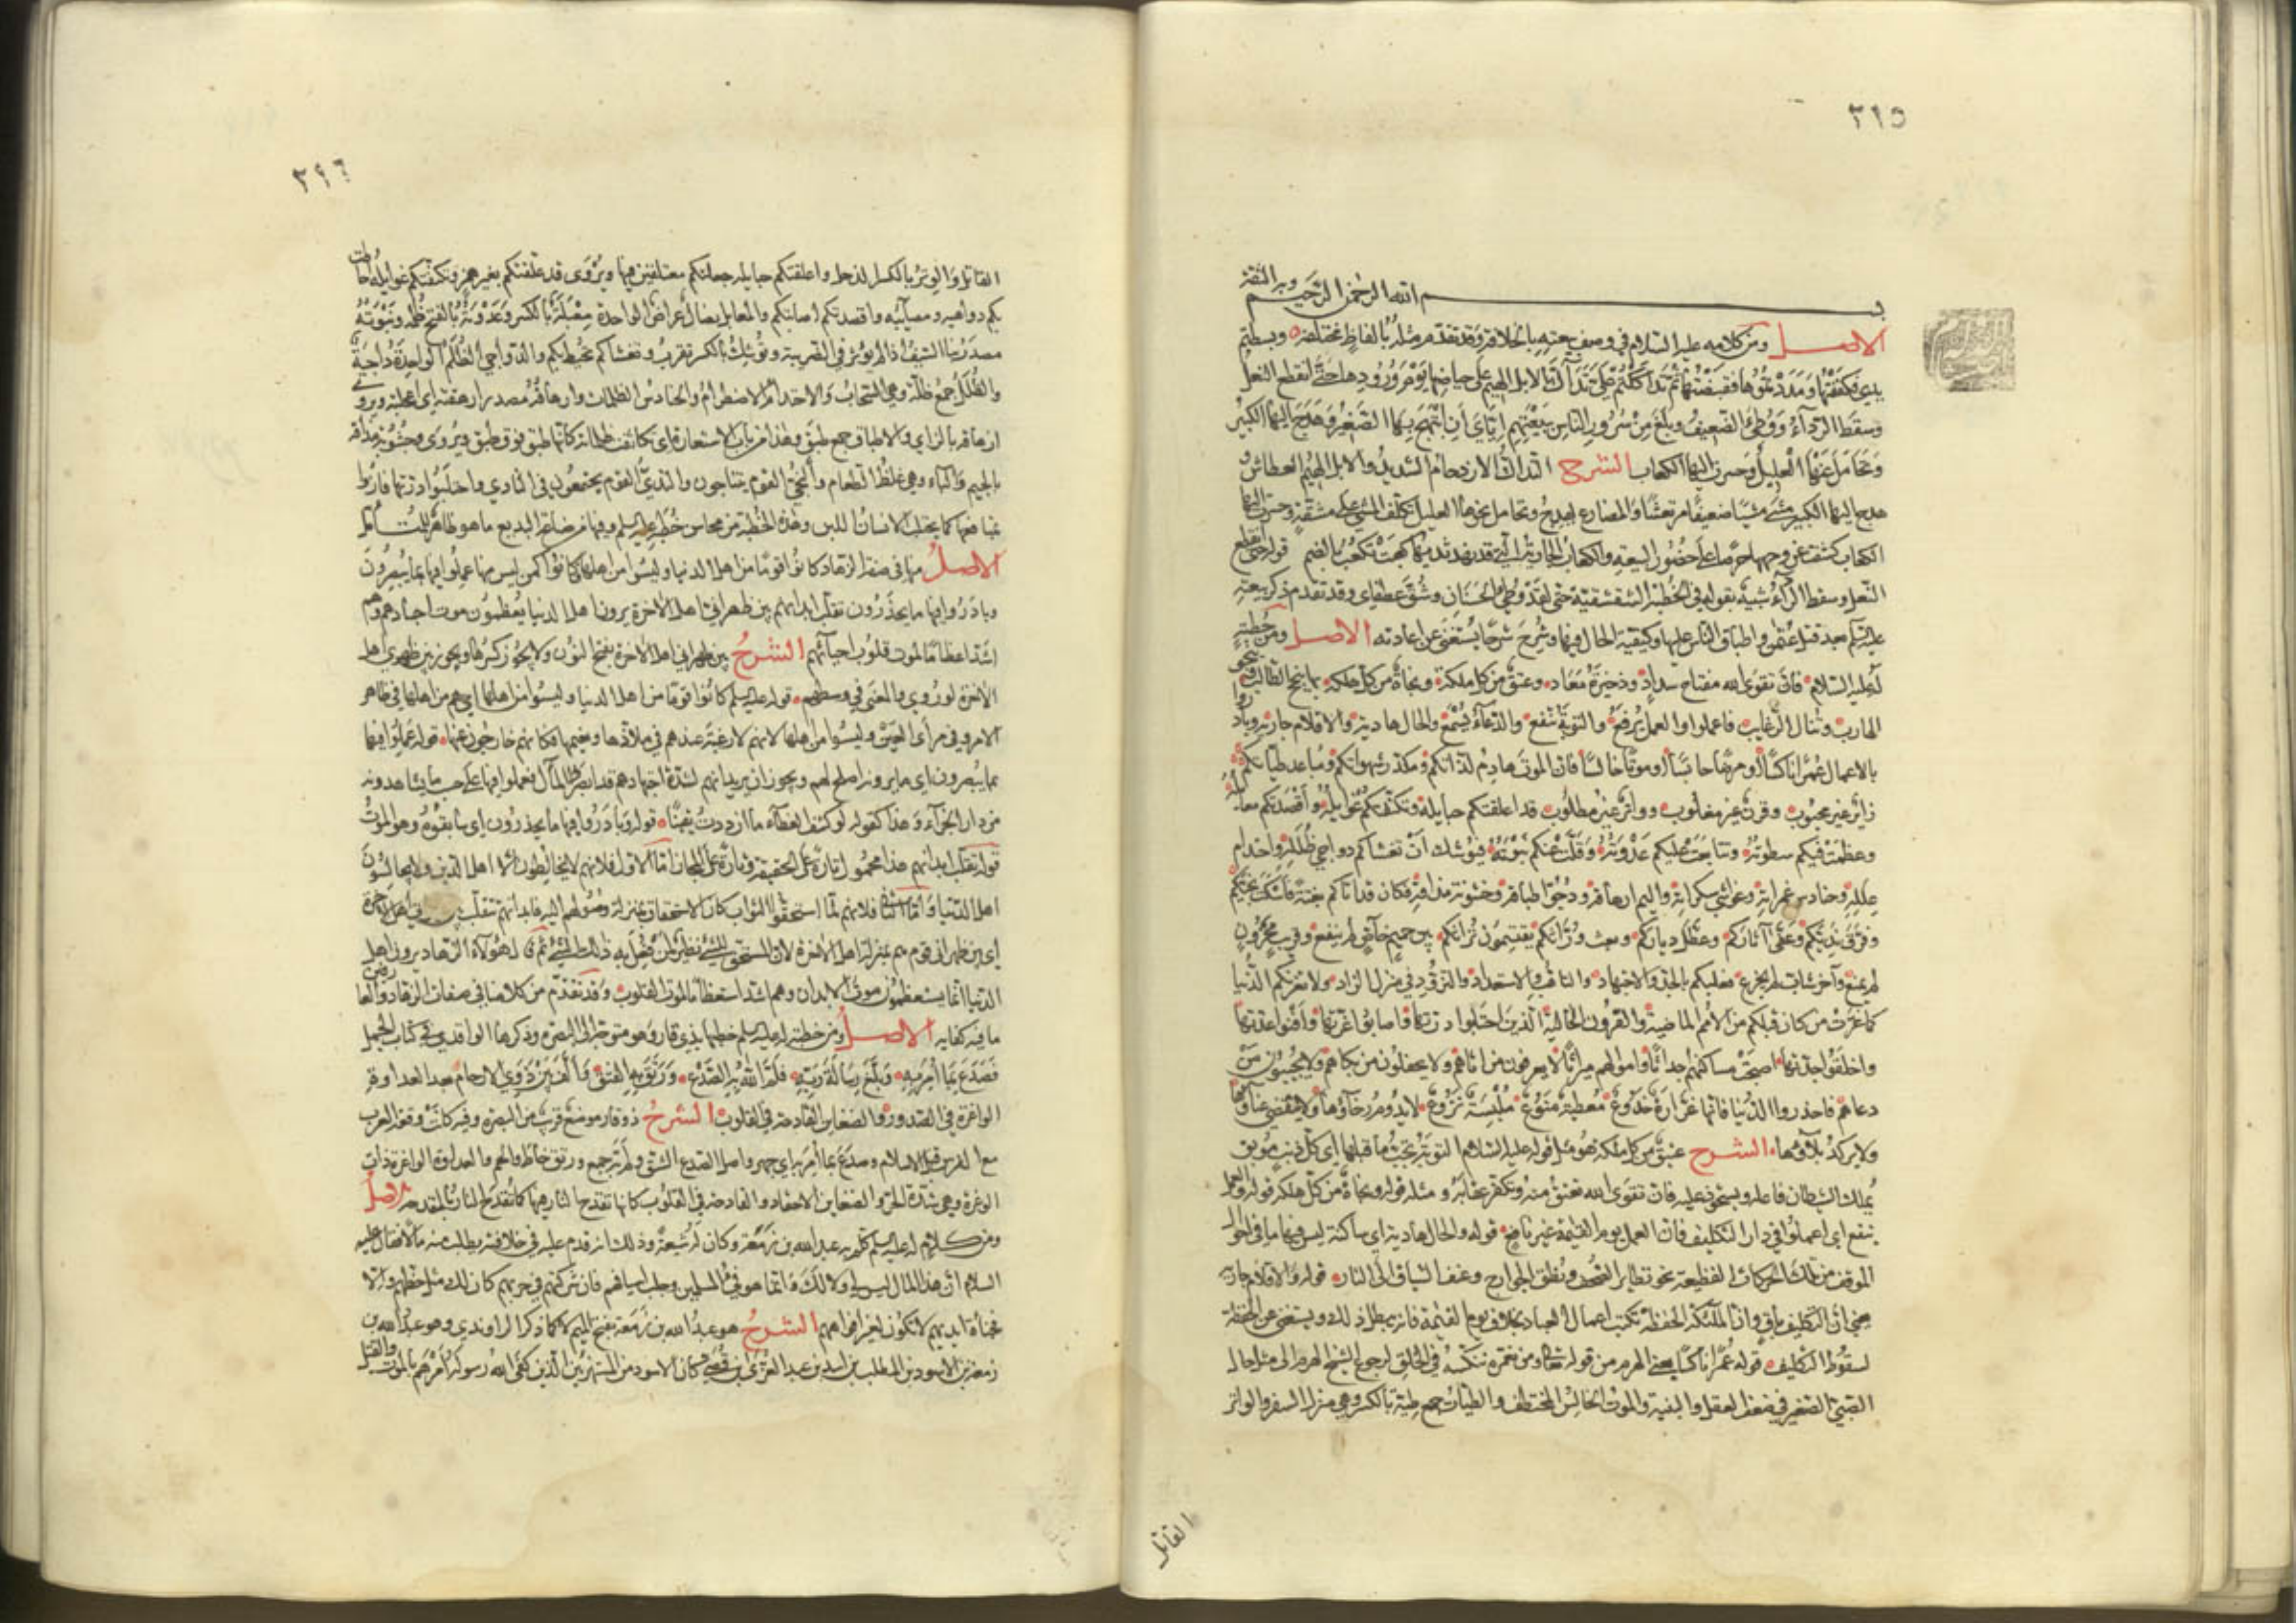 ٣٩٥
وبه الثقة
بسم الله الرحمن الرحيم
الاصل ومن كلامه عليه السلام في وصف بيعته بالخلافة وقد تقدم مثله بالفاظ مختلفة وبسطتم
يدي فكففتها ومددتموها فقبضتها ثم تداككتم علي تداك الابل الهيم على حياضها يوم ورودها حتى انقطع النعل
وسقط الرداء ووطئ الضعيف وبلغ من سرور الناس ببيعتهم اياي ان ابتهج بها الصغير وهدج اليها الكبير
وتحامل نحوها العليل وحسرت اليها الكعاب الشرح التداك الازدحام الشديد والابل الهيم العطاش و
هدج اليها الكبير مشى مشيا ضعيفا مرتعشا والمضارع يهدج وتحامل نحوها العليل تكلف المشي على مشقة وحسرت اليها
الكعاب كشفت عن وجهها حرصا على حضور البيعة والكعاب الجارية التي قد نهد ثديها كعبت تكعب بالضم قوله حتى انقطع
النعل وسقط الرداء شبيه بقوله في الخطبة الشقشقية حتى لقد وطئ الحسنان وشق عطفاي وقد تقدم ذكر بيعته
عليه السلام بعد قتل عثمن واطباق الناس عليها وكيفية الحال فيها وشرح شرحا يستغنى عن اعادته الاصل ومن خطبة
له عليه السلام فان تقوى الله مفتاح سداد وذخيرة معاد وعتق من كل ملكة ونجاة من كل هلكة بها ينجح الطالب وينجو
الهارب وتنال الرغايب فاعملوا والعمل يرفع والتوبة تنفع والدعاء يسمع والحال هادية والاقلام جارية وبادروا
بالاعمال عمرا ناكسا او مرضا حابسا او موتا خالسا فان الموت هادم لذاتكم ومكدر شهواتكم ومباعد طياتكم
زائر غير محبوب وقرن غير مغلوب وواتر غير مطلوب قد اعلقتكم حبايله وتكنفتكم غوايله واقصدتكم معابله
وعظمت فيكم سطوته وتتابعت عليكم عدوته وقلت عنكم نبوته فيوشك ان تغشاكم دواجي ظلله واحتدام
علله وحنادس غمراته وغواشي سكراته واليم ارهاقه ودجو اطباقه وخشونة مذاقه فكان قد اتاكم بغتة فاسكت نجيكم
وفرق نديكم وعفى آثاركم وعطل دياركم وبعث وراثكم يقتسمون تراثكم بين حميم خاص لم ينفع وقريب محزون
لم يمنع وآخر شامت لم يجزع فعليكم بالجد والاجتهاد والتاهب والاستعداد والتزود في منزل الزاد ولا تغرنكم الدنيا
كما غرت من كان قبلكم من الامم الماضية والقرون الخالية الذين احتلبوا درتها واصابوا غرتها وافنوا عدتها
واخلقوا جدتها اصبحت مساكنهم اجداثا واموالهم ميراثا لا يعرفون من اتاهم ولا يحفلون من بكاهم ولا يجيبون من
دعاهم فاحذروا الدنيا فانها غرارة خدوع معطية منوع ملبسة نزوع لا يدوم رخاؤها ولا ينقضي عناؤها
ولا يركد بلاؤها الشرح عتق من كل ملكة هو مثل قوله عليه السلام التوبة تجب ما قبلها اي كل ذنب موبق
يملك الشيطان فاعله ويستحوذ عليه فان تقوى الله تعتق منه وتكفر عقابه ومثله قوله ونجاة من كل هلكة قوله والعمل
ينفع اي اعملوا في دار التكليف فان العمل يوم القيمة غير نافع قوله والحال هادية اي ساكنة ليس فيها ما في احوال
الموقف من تلك الحركات الفظيعة نحو تطاير الصحف ونطق الجوارح وعنف السياق الى النار قوله والاقلام جارية
يعني ان التكليف باق وان الملئكة الحفظة تكتب اعمال العباد بخلاف يوم القيمة فانه يبطل ذلك ويستغنى عن الحفظة
لسقوط التكليف قوله عمرا ناكسا يعني الهرم من قوله تعالى ومن نعمره ننكسه في الخلق لرجوع الشيخ الهرم الى مثل حال
الصبي الصغير في ضعف العقل والبنية والموت الخالس المختطف والطيات جمع طية بالكسر وهي منزل السفر والواتر
القاتل
٣٩٦
القاتل والوتر بالكسر الذحل واعلقتكم حبايله جعلتكم معتلقين فيها ويروى قد علقتكم بغير همز وتكنفتكم غوايله احاطت
بكم دواهيه ومصائبه واقصدتكم اصابتكم والمعابل نصال عراض الواحدة معبلة بالكسر وعدوته بالفتح ظلمه ونبوته
مصدر نبا السيف اذا لم يؤثر في الضريبة ويوشك بالكسر تقرب وتغشاكم تحيط بكم والدواجي الظلم الواحدة داجية
والظلل جمع ظلة وهي السحاب والاحتدام الاضطرام والحنادس الظلمات وارهاقه مصدر ارهقته اي اعجلته ويروى
ازهاقه بالزاي والاطباق جمع طبق وهذا من باب الاستعارة اي تكاثف ظلماته كانها طبق فوق طبق ويروى وجشوبة مذاقه
بالجيم والباء وهي غلظ الطعام والنجي القوم يتناجون والندي القوم يجتمعون في النادي واحتلبوا درتها فازوا
بمنافعها كما يحتلب الانسان اللبن وهذه الخطبة من محاسن خطبه عليه السلم وفيها من صناعة البديع ما هو ظاهر للمتأمل
الاصل منها في صفة الزهاد كانوا قوما من اهل الدنيا وليسوا من اهلها فكانوا فيها كمن ليس منها عملوا فيها بما يبصرون
وبادروا فيها ما يحذرون تقلب ابدانهم بين ظهراني اهل الاخرة يرون اهل الدنيا يعظمون موت اجسادهم وهم
اشد اعظاما لموت قلوب احيائهم الشرح بين ظهراني اهل الاخرة بفتح النون ولا يجوز كسرها ويجوز بين ظهري اهل
الاخرة لو روي والمعنى في وسطهم قوله عليه السلم كانوا قوما من اهل الدنيا وليسوا من اهلها اي هم من اهلها في ظاهر
الامر وفي مرأى العين وليسوا من اهلها لانهم لا رغبة عندهم في ملاذها ونعيمها فكانهم خارجون عنها قوله عملوا فيها
بما يبصرون اي بما يرونه اصلح لهم ويجوز ان يريد انهم لشدة اجتهادهم قد ابصروا المآل فعملوا فيها على حسب ما يشاهدونه
من دار الجزاء وهذا كقوله لو كشف الغطاء ما ازددت يقينا قوله وبادروا فيها ما يحذرون اي سابقوه وهو الموت
قوله تقلب ابدانهم هذا محمول تارة على الحقيقة وتارة على المجاز اما الاول فلانهم لا يخالطون الا اهل الدين ولا يجالسون
اهل الدنيا واما الثاني فلانهم لما استحقوا الثواب كان الاستحقاق بمنزلة وصولهم اليه فابدانهم تتقلب بين ظهراني اهل الاخرة
اي بين ظهراني قوم هم بمنزلة اهل الاخرة لان المستحق للشيء نظير لمن فعل به ذلك الشيء ثم قال هؤلاء الزهاد يرون اهل
الدنيا انما يستعظمون موت الابدان وهم اشد استعظاما لموت القلوب وقد تقدم من كلامنا في صفات الزهاد والعارفين
ما فيه كفاية الاصل ومن خطبة له عليه السلم خطبها بذي قار وهو متوجه الى البصرة وذكرها الواقدي في كتاب الجمل
فصدع بما امر به وبلغ رسالة ربه فلم الله به الصدع ورتق به الفتق والف بين ذوي الارحام بعد العداوة
الواغرة في الصدور والضغاين القادحة في القلوب الشرح ذو قار موضع قريب من البصرة وفيه كانت وقعة العرب
مع الفرس قبل الاسلام وصدع بما امر به اي جهر واصل الصدع الشق ولم به جمع ورتق خاط والحم والعداوة الواغرة ذات
الوغرة وهي شدة الحر والضغاين الاحقاد والقادحة في القلوب كانها تقدح النار فيها كما تقدح النار بالمقدحة الاصل
ومن كلام له عليه السلم كلم به عبد الله بن زمعة وكان له شيعة وذلك انه قدم عليه في خلافته يطلب منه مالا فقال عليه
السلام ان هذا المال ليس لي ولا لك وانما هو فيء للمسلمين وجلب اسيافهم فان شركتهم في حربهم كان لك مثل حظهم والا
فجناة ايديهم لا تكون لغير افواههم الشرح هو عبد الله بن زمعة بفتح الميم لا كما ذكر الراوندي وهو عبد الله بن
زمعة بن الاسود بن المطلب بن اسد بن عبد العزى بن قصي كان الاسود من المستهزئين الذين كفى الله رسوله امرهم بالموت والقتل